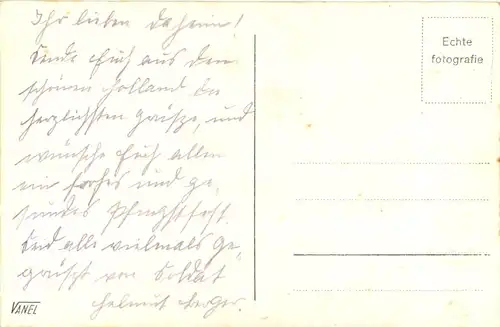 Ihr lieben daheim!
Sende Euch aus dem
schönen Holland die
herzlichsten Grüße, und
wünsche Euch allen
ein frohes und ge-
sundes Pfingstfest.
Seid alle vielmals ge-
grüßt von Soldat
Helmut Berger.
Echte
fotografie
VANEL